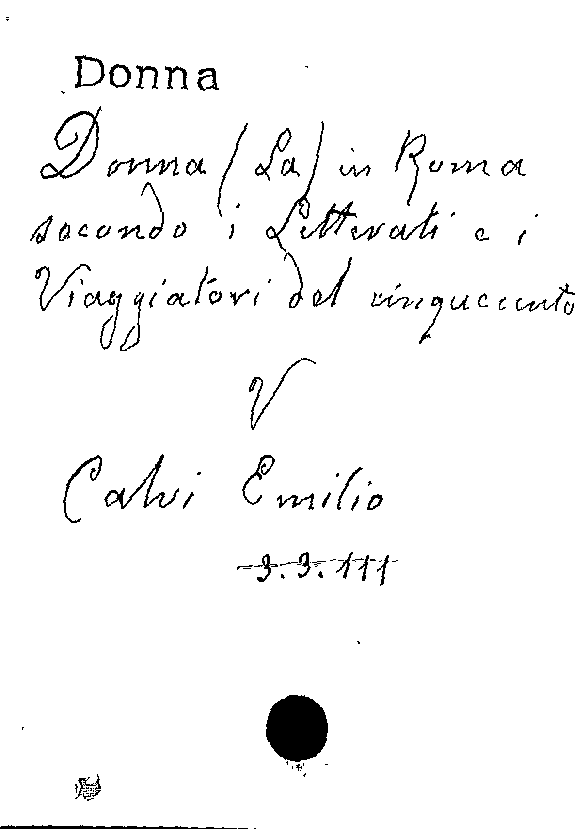 Donna
Donna (La) in Roma
secondo i Letterati e i
Viaggiatori del cinquecento
V
Calvi Emilio
3.3.111